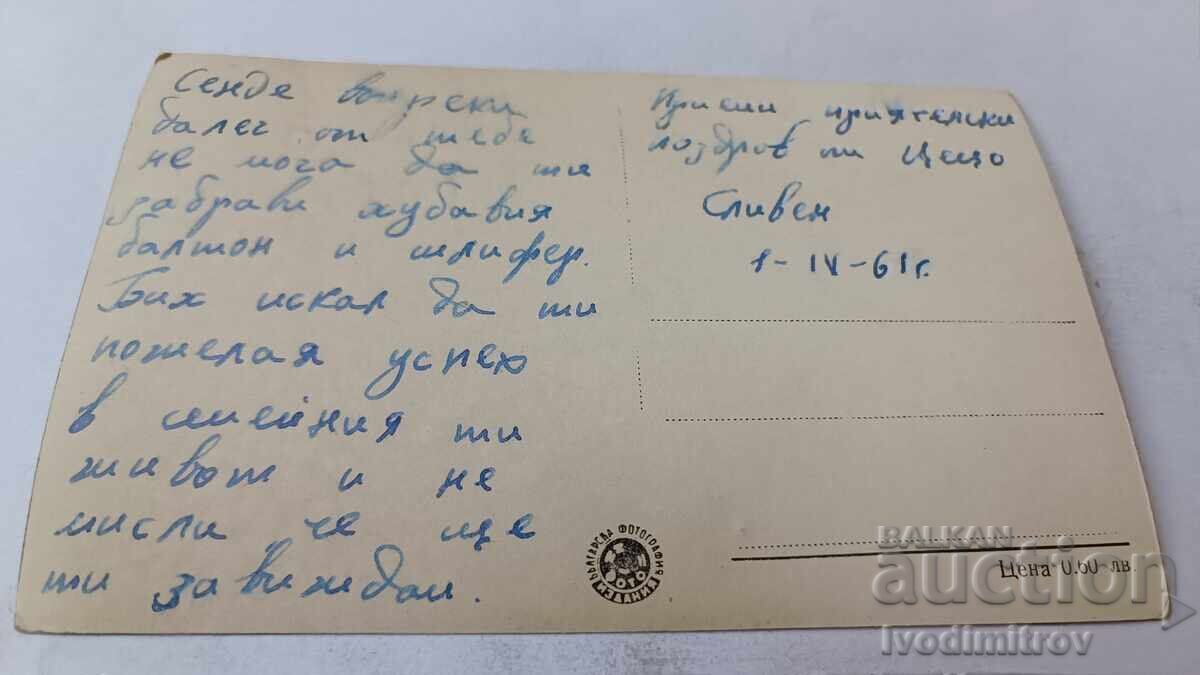 Сенде въпреки
далеч от тебе
не мога да ти
забравя хубавия
балтон и шлифер.
Бих искал да ти
пожелая успех
в семейния ти
живот и не
мисли, че ще
ти завиждам.
Приеми приятелски
поздрав от Цецо
Сливен
1-IV-61г.
БЪЛГАРСКА ФОТОГРАФИЯ
ФОТО
ИЗДАНИЕ
Цена 0.60 лв.
BALKAN
auction
Ivodimitrov